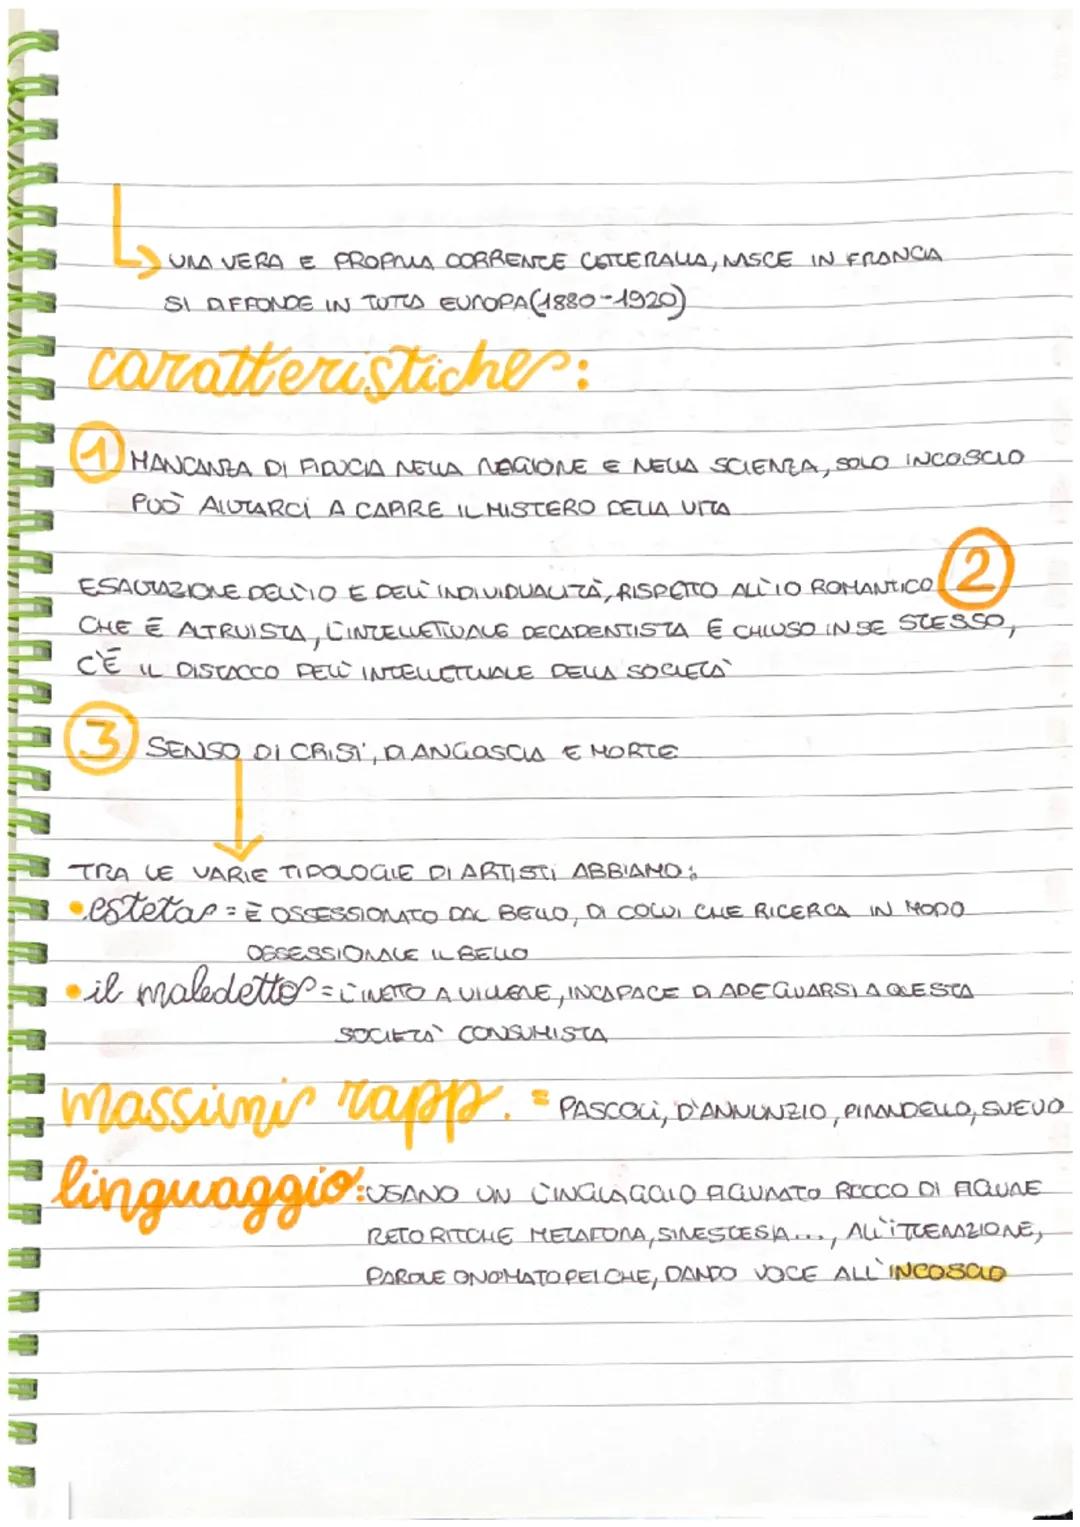 UNA VERA E PROPRIA CORRENTE LETTERARIA, NASCE IN FRANCIA
SI DIFFONDE IN TUTTA EUROPA (1880-1920)
caratteristiche:
1 MANCANZA DI FIDUCIA NELLA RAGIONE E NELLA SCIENZA, SOLO INCOSCIO
PUÒ AIUTARCI A CAPIRE IL MISTERO DELLA VITA
ESALTAZIONE DELL'IO E DELL'INDIVIDUALITÀ, RISPETTO ALL'IO ROMANTICO 2
CHE È ALTRUISTA, L'INTELLETTUALE DECADENTISTA È CHIUSO IN SE STESSO,
C'È IL DISTACCO DELL'INTELLETTUALE DELLA SOCIETÀ
3 SENSO DI CRISI, DI ANGOSCIA E MORTE
TRA LE VARIE TIPOLOGIE DI ARTISTI ABBIAMO:
• esteta = È OSSESSIONATO DAL BELLO, DI COLUI CHE RICERCA IN MODO
OSSESSIONALE IL BELLO
• il maledetto = L'INETTO A VIVERE, INCAPACE DI ADEGUARSI A QUESTA
SOCIETÀ CONSUMISTA
massimi rapp. = PASCOLI, D'ANNUNZIO, PIRANDELLO, SVEVO
linguaggio: USANO UN LINGUAGGIO FIGURATO RICCO DI FIGURE
RETORITCHE METAFORA, SINESTESIA..., ALL'ITTERAZIONE,
PAROLE ONOMATOPEICHE, DANDO VOCE ALL'INCOSCIO